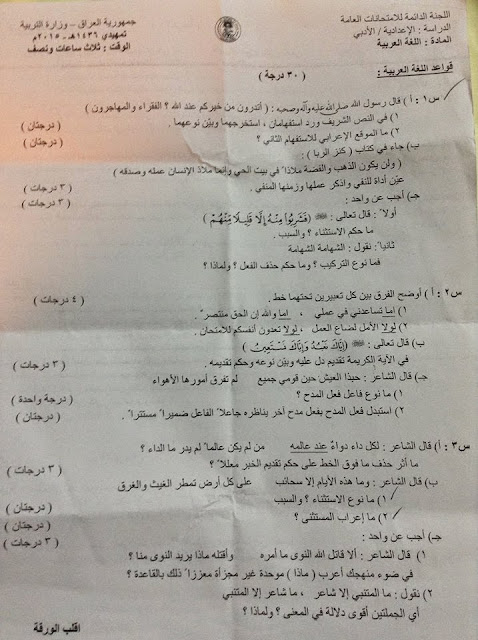 اللجنة الدائمة للامتحانات العامة
الدراسة : الإعدادية / الأدبي
المادة : اللغة العربية
جمهورية العراق - وزارة التربية
تمهيدي ١٤٣٦هـ - ٢٠١٥م
الوقت : ثلاث ساعات ونصف
قواعد اللغة العربية :
( ٣٠ درجة )
س١ : أ ) قال رسول الله صلى الله عليه وآله وصحبه : ( أتدرون من خيركم عند الله ؟ الفقراء والمهاجرون )
١) في النص الشريف ورد استفهامان ، استخرجهما وبيّن نوعهما . ( درجتان )
٢) ما الموقع الإعرابي للاستفهام الثاني ؟ ( درجتان )
ب) جاء في كتاب ( كنز الربا ) :
( ولن يكون الذهب والفضة ملاذاً في بيت الحي وإنما ملاذ الإنسان عمله وصدقه )
عيّن أداة للنفي واذكر عملها وزمنها المنفي . ( ٣ درجات )
جـ) أجب عن واحد : ( ٣ درجات )
أولاً : قال تعالى : ﴿فَشَرِبُوا مِنْهُ إِلَّا قَلِيلًا مِنْهُمْ﴾
ما حكم الاستثناء ؟ والسبب .
ثانياً : نقول : الشهامة الشهامة
فما نوع التركيب ؟ وما حكم حذف الفعل ؟ ولماذا ؟
س٢ : أ ) أوضح الفرق بين كل تعبيرين تحتهما خط . ( ٤ درجات )
١) إما تساعدني في عملي ، إما والله إن الحق منتصرٌ .
٢) لولا الأمل لضاع العمل ، لولا تعدون أنفسكم للامتحان .
ب) قال تعالى : ﴿إِيَّاكَ نَعْبُدُ وَإِيَّاكَ نَسْتَعِينُ﴾
في الآية الكريمة تقديم دل عليه وبيّن نوعه وحكم تقديمه . ( ٣ درجات )
جـ) قال الشاعر : حبذا العيش حين قومي جميع لم تفرق أمورها الأهواء
١) ما نوع فاعل فعل المدح ؟ ( درجة واحدة )
٢) استبدل فعل المدح بفعل مدح آخر يناظره جاعلاً الفاعل ضميراً مستتراً . ( درجتان )
س٣ : أ ) قال الشاعر : لكل داء دواءٌ عند عالمه من لم يكن عالماً لم يدر ما الداء ؟
ما أثر حذف ما فوق الخط على حكم تقديم الخبر معللاً ؟ ( ٣ درجات )
ب) قال الشاعر : وما هذه الأيام إلا سحائب على كل أرض تمطر الغيث والغرق
١) ما نوع الاستثناء ؟ والسبب ( درجتان )
٢) ما إعراب المستثنى ؟ ( درجتان )
جـ) أجب عن واحد : ( ٣ درجات )
١) قال الشاعر : ألا قاتل الله النوى ما أمره وأقتله ماذا يريد النوى منا ؟
في ضوء منهجك أعرب ( ماذا ) موحدة غير مجزأة معززاً ذلك بالقاعدة ؟
٢) نقول : ما المتنبي إلا شاعر ، ما شاعر إلا المتنبي
أي الجملتين أقوى دلالة في المعنى ؟ ولماذا ؟
اقلب الورقة